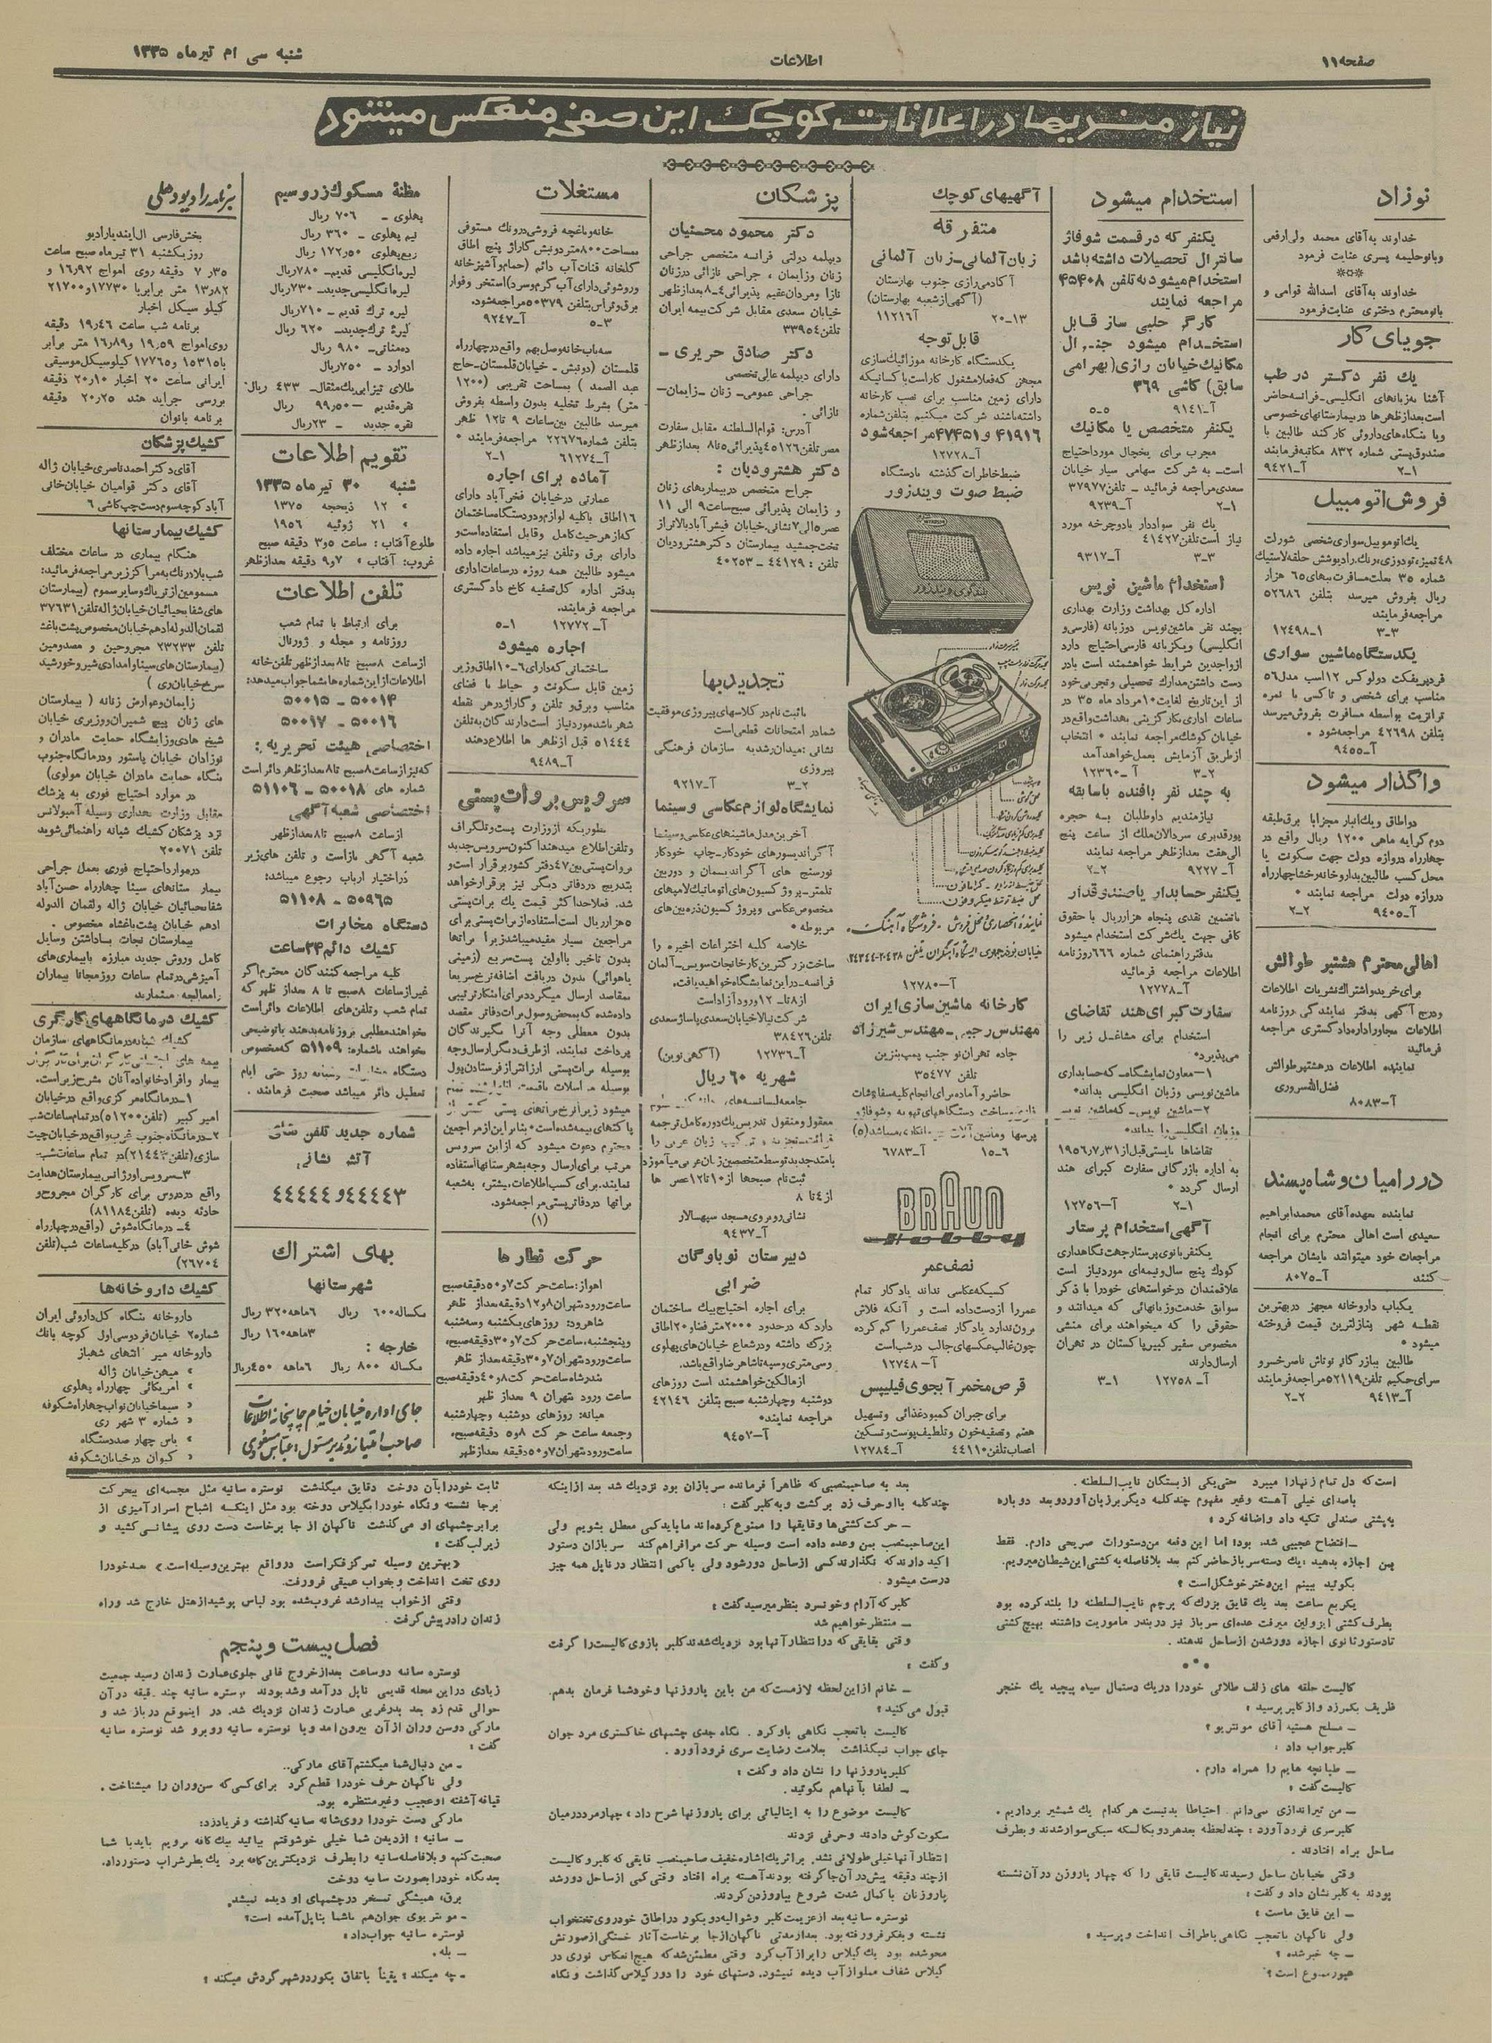 صفحه ۱۱
اطلاعات
شنبه سی ام تیرماه ۱۳۳۵
نیازمندیها در اعلانات کوچک این صفحه منعکس میشود
نوزاد
خداوند به آقای محمد ولی ارفعی
و بانو حلیمه پسری عنایت فرمود
***
خداوند به آقای اسدالله قوامی و
بانو محترم دختری عنایت فرمود
جویای کار
یك نفر دکتر در طب
آشنا به زبانهای انگلیسی ـ فرانسه حاضر
است بعدازظهرها در بیمارستانهای خصوصی
و یا بنگاه‌های داروئی کار کند طالبین با
صندوق پستی شماره ۸۳۲ مکاتبه فرمایند
۱ـ۲ آـ۹۴۲۱
فروش اتومبیل
یك اتومبیل سواری شخصی شورلت
۴۸ تمیز، تودوزی، رنگ، رادیو، شش حلقه لاستیك
شماره ۳۵ بعلت مسافرت ببهای ۶۵ هزار
ریال بفروش میرسد بتلفن ۵۲۶۸۶
مراجعه فرمایند
۳ـ۳ ۱ـ۱۲۴۹۸
یکدستگاه ماشین سواری
فرد پریفکت دولوکس ۱۲ اسب مدل ۵۶
مناسب برای شخصی و تاکسی با نمره
ترانزیت بواسطه مسافرت بفروش میرسد
بتلفن ۴۲۶۹۸ مراجعه شود .
آـ۹۴۵۵
واگذار میشود
دو اطاق و یك انبار مجزا با برق طبقه
دوم کرایه ماهی ۱۲۰۰ ریال واقع در
چهارراه دروازه دولت جهت سکونت یا
محل کسب طالبین بداروخانه رخشا چهارراه
دروازه دولت مراجعه نمایند •
آـ۹۴۰۵ ۲ـ۲
اهالی محترم هشتپر طوالش
برای خرید و اشتراك نشریات اطلاعات
و درج آگهی بدفتر نمایندگی روزنامه
اطلاعات مجاور اداره دادگستری مراجعه
فرمائید
نماینده اطلاعات در هشتپر طوالش
فضل الله سروری
آـ۸۰۸۳
در رامیان و شاه پسند
نماینده بعهده آقای محمد ابراهیم
سعیدی است اهالی محترم برای انجام
مراجعات خود میتوانند بایشان مراجعه
کنند آـ۸۰۷۵
یکباب داروخانه مجهز در بهترین
نقطه شهر بنازلترین قیمت فروخته
میشود •
طالبین ببازرگانی توتاش ناصرخسرو
سرای حکیم تلفن ۵۲۱۱۹ مراجعه فرمایند
آـ۹۴۱۳ ۲ـ۲
استخدام میشود
یکنفر که در قسمت شوفاژ
سانترال تحصیلات داشته باشد
استخدام میشود به تلفن ۴۵۴۰۸
مراجعه نمایند
کارگر حلبی ساز قابل
استخدام میشود جنرال
مکانیك خیابان رازی (بهرامی
سابق) کاشی ۳۶۹
آـ۹۱۴۱ ۵ـ۵
یکنفر متخصص یا مکانیك
مجرب برای یخچال مورد احتیاج
است به شرکت سهامی سیار خیابان
سعدی مراجعه فرمائید ـ تلفن ۳۷۹۷۷
۱ـ۲ آـ۹۲۳۹
یك نفر سواددار با دوچرخه مورد
نیاز است تلفن ۴۱۴۲۷
۳ـ۳ آـ۹۳۱۷
استخدام ماشین نویس
اداره کل بهداشت وزارت بهداری
بچند نفر ماشین نویس دوزبانه (فارسی و
انگلیسی) و یکزبانه فارسی احتیاج دارد
از واجدین شرایط خواهشمند است با در
دست داشتن مدارك تحصیلی و تجربی خود
از این تاریخ لغایت ۱۰ مرداد ماه ۳۵ در
ساعات اداری بکارگزینی بهداشت واقع در
خیابان کوشك مراجعه نمایند • انتخاب
از طریق آزمایش بعمل خواهد آمد
۲ـ۳ آـ۱۲۳۶۰
به چند نفر بافنده با سابقه
نیازمندیم داوطلبان به حجره
پورقدیری سردالان ملك از ساعت پنج
الی هفت بعدازظهر مراجعه نمایند
آـ۹۲۲۷ ۲ـ۲
یکنفر حسابدار یا صندوقدار
باتضمین نقدی پنجاه هزار ریال با حقوق
کافی جهت یك شرکت استخدام میشود
بدفتر راهنمای شماره ۶۶۶ روزنامه
اطلاعات مراجعه فرمائید
آـ۱۲۷۷۸
سفارت کبرای هند تقاضای
استخدام برای مشاغل زیر را
می پذیرد
۱ـ معاون نمایشگاه که حسابداری
ماشین نویسی و زبان انگلیسی بداند•
۲ـ ماشین نویس که ماشین نویسی
و زبان انگلیسی را بداند•
تقاضاها بایستی قبل از ۱۹۵۶ر۷ر۳۱
به اداره بازرگانی سفارت کبرای هند
ارسال گردد •
۱ـ۲ آـ۱۲۷۵۶
آگهی استخدام پرستار
یکنفر بانوی پرستار جهت نگاهداری
کودك پنج سال و نیمه‌ای مورد نیاز است
علاقمندان درخواستهای خود را با ذکر
سوابق خدمت و زبانهائی که میدانند و
حقوقی را که میخواهند برای منشی
مخصوص سفیر کبیر پاکستان در تهران
ارسال دارند
آـ ۱۲۷۵۸ ۱ـ۳
آگهیهای کوچك
متفرقه
زبان آلمانی ـ زبان آلمانی
آکادمی رازی جنوب بهارستان
(آگهی از شعبه بهارستان)
۱۳ـ۲۰ آـ۱۱۲۱۶
قابل توجه
یکدستگاه کارخانه موزائیك سازی
مجهز که فعلا مشغول کار است با کسانیکه
دارای زمین مناسب برای نصب کارخانه
داشته باشند شرکت میکنیم بتلفن شماره
۴۱۹۱۶ و ۴۷۴۵۱ مراجعه شود
آـ۱۲۷۲۸
ضبط خاطرات گذشته با دستگاه
ضبط صوت ویندزور
بلندگوی ویندزور
نماینده انحصاری و محل فروش ـ فروشگاه آهنگ
آـ۱۲۷۸۰
کارخانه ماشین سازی ایران
مهندس رجبی ـ مهندس شیرزاد
جاده تهران نو جنب پمپ بنزین
تلفن ۳۵۴۷۷
حاضر و آماده برای انجام کلیه سفارشات
۶ـ۱۵ آـ۶۷۸۳
BRAUN
نصف عمر
کسیکه عکاسی نداند یادگار تمام
عمر را از دست داده است و آنکه فلاش
برون ندارد یادگار نصف عمر را گم کرده
چون غالب عکسهای جالب در شب است
آـ۱۲۷۴۸
قرص مخمر آبجوی فیلیپس
برای جبران کمبود غذائی و تسهیل
هضم و تصفیه خون و تلطیف پوست و تسکین
اعصاب تلفن ۴۴۱۱۰ آـ۱۲۷۸۴
پزشکان
دکتر محمود محسنیان
دیپلمه دولتی فرانسه متخصص جراحی
زنان و زایمان ، جراحی نازائی در زنان
نازا و مردان عقیم پذیرائی ۴ـ۸ بعدازظهر
خیابان سعدی مقابل شرکت بیمه ایران
تلفن ۳۳۹۵۴
دکتر صادق حریری ـ
دارای دیپلمه عالی تخصصی
جراحی عمومی ـ زنان ـ زایمان ـ
نازائی .
آدرس: قوام السلطنه مقابل سفارت
مصر تلفن ۴۵۱۲۶ پذیرائی ۵ تا ۸ بعدازظهر
دکتر هشترودیان :
جراح متخصص در بیماریهای زنان
و زایمان پذیرائی صبح ساعت ۹ الی ۱۱
عصر ۵ الی ۷ نشانی خیابان فیشرآباد بالاتر از
تخت جمشید بیمارستان دکتر هشترودیان
تلفن : ۴۴۱۲۹ ـ ۴۰۲۵۳
تجدیدیها
با ثبت نام در کلاسهای پیروزی موفقیت
شما در امتحانات قطعی است
نشانی: میدان رشدیه سازمان فرهنگی
پیروزی
۲ـ۳ آـ۹۲۱۷
نمایشگاه لوازم عکاسی و سینما
آخرین مدل ماشینهای عکاسی و سینما
آگراندیسورهای خودکار ـ چاپ خودکار
نورسنج های آگراندیسمان و دوربین
تلمتر ـ پروژکسیون های اتوماتیك لامپهای
مخصوص عکاسی و پروژکسیون ذره بین های
مربوطه •
خلاصه کلیه اختراعات اخیره را
ساخت بزرگترین کارخانجات سویس ـ آلمان
فرانسه ـ در این نمایشگاه خواهید یافت.
از ۸ تا ۱۲ ورود آزاد است
شرکت نیالا خیابان سعدی پاساژ سعدی
تلفن ۳۸۴۲۶
آـ۱۲۷۳۶ (آگهی نوین)
شهریه ۶۰ ریال
معقول و منقول تدریس یك دوره کامل ترجمه
با متد جدید توسط متخصصین زبان عربی میآموزد
ثبت نام صبحها از ۱۰ تا ۱۲ عصرها
از ۴ تا ۸
نشانی روبروی مسجد سپهسالار
آـ۹۴۳۷
دبیرستان نوباوگان
ضرابی
برای اجاره احتیاج بیك ساختمان
دارد که در حدود ۲۰۰۰ متر فضا و ۲۰ اطاق
بزرگ داشته و در شعاع خیابان های پهلوی
و سی متری و سپه تا شاهرضا واقع باشد.
از مالکین خواهشمند است روزهای
دوشنبه و چهارشنبه صبح بتلفن ۴۲۱۴۶
مراجعه نمایند•
آـ۹۴۵۷
مستغلات
خانه و باغچه فروشی در ونك مستوفی
بمساحت ۸۰۰ متر دونبش گاراژ پنج اطاق
گلخانه قنات آب دائم (حمام و آشپزخانه
و روشوئی دارای آب گرم و سرد) استخر و فوار
برق و تراس بتلفن ۵۰۳۷۹ مراجعه شود.
۳ـ۵ آـ۹۲۴۷
سه باب خانه وصل بهم واقع در چهارراه
قلمستان (دونبش ـ خیابان قلمستان ـ حاج
عبدالصمد ) بمساحت تقریبی (۱۲۰۰
متر) بشرط تخلیه بدون واسطه بفروش
میرسد طالبین بین ساعات ۹ تا ۱۲ ظهر
بتلفن شماره ۲۲۶۷۶ مراجعه فرمایند •
آـ۶۱۲۷۴ ۱ـ۲
آماده برای اجاره
عمارتی در خیابان فخرآباد دارای
۱۶ اطاق با کلیه لوازم و دو دستگاه ساختمان
که از هر حیث کامل و قابل استفاده است و
دارای برق و تلفن نیز میباشد اجاره داده
میشود طالبین همه روزه در ساعات اداری
بدفتر اداره کل تصفیه کاخ دادگستری
مراجعه فرمایند.
آـ۱۲۷۷۲ ۱ـ۵
اجاره میشود
ساختمانی که دارای ۶ـ۱۰ اطاق و زیر
زمین قابل سکونت و حیاط با فضای
مناسب و برق و تلفن و گاراژ در هر نقطه
شهر باشد مورد نیاز است دارندگان به تلفن
۵۱۴۴۴ قبل از ظهرها اطلاع دهند
آـ۹۴۸۹
سرویس بروات پستی
بطوریکه از وزارت پست و تلگراف
و تلفن اطلاع میدهند اکنون سرویس جدید
بروات پستی بین ۴۷ دفتر کشور برقرار است و
بتدریج در دفاتر دیگر نیز برقرار خواهد
شد. فعلا حداکثر قیمت یك برات پستی
۵ هزار ریال است استفاده از برات پستی برای
مراجعین بسیار مفید میباشد زیرا براتها
بدون تاخیر با اولین پست سریع (زمینی
یا هوائی) بدون دریافت اضافه نرخ سریعا
بمقاصد ارسال میگردد برای ابتکار ترتیبی
داده شده که بمحض وصول برات دفاتر مقصد
بدون معطلی وجه آنرا بگیرندگان
پرداخت نمایند. از طرف دیگر ارسال وجه
بوسیله برات پستی ارزانتر از فرستادن پول
میشود زیرا نرخ براتهای پستی کمتر از
پاکتهای بیمه شده است • بنابراین از مراجعین
محترم دعوت میشود که از این سرویس
مرتب برای ارسال وجه بشهرستانها استفاده
نمایند. برای کسب اطلاعات بیشتر، به شعبه
براتها در دفاتر پستی مراجعه شود.
(۱)
حرکت قطارها
اهواز: ساعت حرکت ۷ و ۵۰ دقیقه صبح
ساعت ورود تهران ۸ و ۱۲ دقیقه بعداز ظهر
شاهرود: روزهای یکشنبه و سه شنبه
و پنجشنبه، ساعت حرکت ۷ و ۳۰ دقیقه صبح،
ساعت ورود تهران ۷ و ۳۰ دقیقه بعداز ظهر
بندرشاه ساعت حرکت ۸ و ۴۰ دقیقه صبح
ساعت ورود تهران ۹ بعداز ظهر
میانه: روزهای دوشنبه و چهارشنبه
و جمعه ساعت حرکت ۸ و ۵ دقیقه صبح،
ساعت ورود تهران ۷ و ۵۰ دقیقه بعداز ظهر
مظنهٔ مسکوك زر و سیم
پهلوی ـ ۷۰۶ ریال
نیم پهلوی ـ ۳۶۰ ریال
ربع پهلوی ـ ۱۷۲ر۵۰ ریال
لیره انگلیسی قدیم ـ ۷۸۰ ریال
لیره انگلیسی جدید ـ ۷۳۰ ریال
لیره ترك قدیم ـ ۷۱۰ ریال
لیرهٔ ترك جدید ـ ۶۲۰ ریال
ده مناتی ـ ۹۸۰ ریال
ادوارد ـ ۷۵۰ ریال
طلای تیزابی یك مثقال ـ ۴۳۳ ریال
نقره قدیم ـ ۹۹ر۵۰ ریال
نقره جدید ـ ۲۳ ریال
تقویم اطلاعات
شنبه ۳۰ تیر ماه ۱۳۳۵
« ۱۲ ذیحجه ۱۳۷۵
« ۲۱ ژوئیه ۱۹۵۶
طلوع آفتاب : ساعت ۵ و ۳ دقیقه صبح
غروب آفتاب « ۷ و ۹ دقیقه بعدازظهر
تلفن اطلاعات
برای ارتباط با تمام شعب
روزنامه و مجله و ژورنال
از ساعت ۸ صبح تا ۸ بعدازظهر تلفن خانه
اطلاعات از این شماره ها بشما جواب میدهد:
۵۰۰۱۴ ـ ۵۰۰۱۵
۵۰۰۱۶ ـ ۵۰۰۱۷
اختصاصی هیئت تحریریه :
که نیز از ساعت ۸ صبح تا ۸ بعدازظهر دائر است
شماره های ۵۰۰۱۸ ـ ۵۱۱۰۶
اختصاصی شعبه آگهی
از ساعت ۸ صبح تا ۸ بعدازظهر
شعبه آگهی باز است و تلفن های زیر
در اختیار ارباب رجوع میباشد:
۵۰۹۶۵ ـ ۵۱۱۰۸
دستگاه مخابرات
کشیك دائم ۲۴ ساعت
کلیه مراجعه کنندگان محترم اگر
غیر از ساعات ۸ صبح تا ۸ بعد از ظهر که
تمام شعب و تلفن های اطلاعات دائر است
بخواهند مطلبی بروزنامه بدهند یا توضیحی
بخواهند باشماره: ۵۱۱۰۹ که مخصوص
دستگاه مخابرات شبانه روز حتی ایام
تعطیل دائر میباشد صحبت فرمایند .
شماره جدید تلفن های
آتش نشانی
۴۴۴۴۳ و ۴۴۴۴۴
بهای اشتراك
شهرستانها
یکساله ۶۰۰ ریال ۶ ماهه ۳۲۰ ریال
۳ ماهه ۱۶۰ ریال
خارجه :
یکساله ۸۰۰ ریال ۶ ماهه ۴۵۰ ریال
جای اداره خیابان خیام چاپخانه اطلاعات
صاحب امتیاز و مدیر مسئول: عباس مسعودی
برنامه رادیو دهلی
بخش فارسی آل ایندیا رادیو
روز یکشنبه ۳۱ تیرماه صبح ساعت
۷ر۳۵ دقیقه روی امواج ۱۶ر۹۲ و
۱۳ر۸۲ متر برابر با ۱۷۷۳۰ و ۲۱۷۰۰
کیلو سیکل اخبار
برنامه شب ساعت ۱۹ر۴۶ دقیقه
روی امواج ۱۹ر۵۹ و ۱۶ر۸۹ متر برابر
با ۱۵۳۱۵ و ۱۷۷۶۵ کیلوسیکل موسیقی
ایرانی ساعت ۲۰ اخبار ۲۰ر۱۰ دقیقه
بررسی جراید هند ۲۰ر۲۵ دقیقه
برنامه بانوان
کشیك پزشکان
آقای دکتر احمد ناصری خیابان ژاله
آقای دکتر قوامیان خیابان خانی
آباد کوچه سوم دست چپ کاشی ۶
کشیك بیمارستانها
هنگام بیماری در ساعات مختلف
شب بلادرنگ به مراکز زیر مراجعه فرمائید:
مسمومین از تریاك و سایر سموم (بیمارستان
های شفا یحیائیان خیابان ژاله تلفن ۳۷۶۳۱
لقمان الدوله ادهم خیابان مخصوص پشت باغشاه
تلفن ۲۳۲۳۳ مجروحین و مصدومین
(بیمارستان های سینا و امدادی شیر و خورشید
سرخ خیابان ری )
زایمان و عوارض زنانه ( بیمارستان
های زنان پیچ شمیران و وزیری خیابان
شیخ هادی و زایشگاه حمایت مادران و
نوزادان خیابان پاستور و درمانگاه جنوب
بنگاه حمایت مادران خیابان مولوی)
در موارد احتیاج فوری به پزشك
مقابل وزارت بهداری وسیله آمبولانس
نزد پزشکان کشیك شبانه راهنمائی شوید
تلفن ۲۰۰۷۱
در موارد احتیاج فوری بعمل جراحی
بیمارستانهای سینا چهارراه حسن آباد
شفا یحیائیان خیابان ژاله و لقمان الدوله
ادهم خیابان پشت باغشاه مخصوص .
بیمارستان نجات با داشتن وسایل
کامل و روش جدید مبارزه با بیماری های
آمیزشی در تمام ساعات روز مجانا بیماران
را معالجه مینماید
کشیك درمانگاههای کارگری
کشیك شبانه درمانگاههای سازمان
بیمار و افراد خانواده آنان بشرح زیر است.
۱ـ درمانگاه مرکزی واقع در خیابان
امیر کبیر (تلفن ۵۱۲۰۰) در تمام ساعات شب
۲ـ درمانگاه جنوب غرب واقع در خیابان چیت
سازی (تلفن ۲۱۴۴۴) در تمام ساعات شب
۳ـ سرویس اورژانس بیمارستان هدایت
واقع در دروس برای کارگران مجروح و
حادثه دیده (تلفن ۸۱۱۸۴)
۴ـ درمانگاه شوش (واقع در چهارراه
شوش خانی آباد) در کلیه ساعات شب (تلفن
۲۶۷۰۴)
کشیك داروخانه‌ها
داروخانه بنگاه کل داروئی ایران
شماره ۲ خیابان فردوسی اول کوچه بانك
داروخانه میر انتهای شهباز
« میهن خیابان ژاله
« آمریکائی چهارراه پهلوی
« سیما خیابان نواب چهارراه شکوفه
« شماره ۳ شهر ری
« یاس چهار صد دستگاه
« کیوان در خیابان شکوفه
است که دل تمام زنها را میبرد حتی یکی از بستگان نایب السلطنه .
با صدای خیلی آهسته و غیر مفهوم چند کلمه دیگر بر زبان آورد و بعد دوباره
به پشتی صندلی تکیه داد و اضافه کرد :
ـ افتضاح عجیبی شده بود؛ اما این دفعه من دستورات صریحی دارم. فقط
بمن اجازه بدهید، یك دسته سرباز حاضر کنم بعد بلافاصله به کشتی این شیطان میرویم.
بگوئید ببینم این دختر خوشگل است ؟
یکربع ساعت بعد یك قایق بزرگ که پرچم نایب السلطنه را بلند کرده بود
بطرف کشتی ایزولین میرفت عده‌ای سرباز نیز در بندر ماموریت داشتند بهیچ کشتی
تا دستور ثانوی اجازه دور شدن از ساحل ندهند .
***
کالیست حلقه های زلف طلائی خود را در یك دستمال سیاه پیچید یك خنجر
ظریف بکمر زد و از کلبر پرسید :
ـ مسلح هستید آقای مونتریو ؟
کلبر جواب داد :
ـ طپانچه هایم را همراه دارم .
کالیست گفت :
ـ من تیراندازی نمیدانم . احتیاطا بدنیست هر کدام یك شمشیر برداریم .
کلبر سری فرود آورد : چند لحظه بعد هر دو با کالسکه سبکی سوار شدند و بطرف
ساحل براه افتادند .
وقتی خیابان ساحل رسیدند کالیست قایقی را که چهار پاروزن در آن نشسته
بودند به کلبر نشان داد و گفت :
ـ این قایق ماست ؛
ولی ناگهان با تعجب نگاهی باطراف انداخت و پرسید :
ـ چه خبر شده ؟
موضوع است ؟
بعد به صاحبنصبی که ظاهراً فرمانده سربازان بود نزدیك شد بعد از اینکه
چند کلمه با او حرف زد برگشت و به کلبر گفت :
ـ حرکت کشتی ها و قایقها را ممنوع کرده اند ما باید کمی معطل بشویم ولی
این صاحبنصب بمن وعده داده است وسیله حرکت ما را فراهم کند سربازان دستور
اکید دارند که نگذارند کسی از ساحل دور شود ولی با کمی انتظار در ناپل همه چیز
درست میشود .
کلبر که آرام و خونسرد بنظر میرسید گفت :
ـ منتظر خواهیم شد
وقتی بقایقی که در انتظار آنها بود نزدیك شدند کلبر بازوی کالیست را گرفت
و گفت :
ـ خانم از این لحظه لازمست که من باین پاروزنها و خود شما فرمان بدهم.
قبول می کنید ؟
کالیست با تعجب نگاهی باو کرد . نگاه جدی چشمهای خاکستری مرد جوان
جای جواب نمیگذاشت بعلامت رضایت سری فرود آورد .
کلبر پاروزنها را نشان داد و گفت :
ـ لطفا بآنها هم بگوئید .
کالیست موضوع را به ایتالیائی برای پاروزنها شرح داد ، چهار مرد در میان
سکوت گوش دادند و حرفی نزدند
انتظار آنها خیلی طولانی نشد. براثر یك اشاره خفیف صاحبنصب قایقی که کلبر و کالیست
از چند دقیقه پیش در آن جا گرفته بودند آهسته براه افتاد وقتی کمی از ساحل دور شد
پاروزنان با کمال شدت شروع بپاروزدن کردند.
نوستره سانیه بعد از عزیمت کلبر و شوالیه دو بکور در اطاق خود روی تختخواب
نشسته و بفکر فرو رفته بود. بعد از مدتی ناگهان از جا برخاست آثار خستگی از صورتش
محو شده بود یك گیلاس را پر از آب کرد وقتی مطمئن شد که هیچ انعکاس نوری در
گیلاس شفاف مملو از آب دیده نمیشود. دستهای خود را دور گیلاس گذاشت و نگاه
ثابت خود را بآن دوخت دقایق میگذشت نوستره سانیه مثل مجسمه‌ای بیحرکت
برجا نشسته و نگاه خود را بگیلاس دوخته بود مثل اینکه اشباح اسرارآمیزی از
برابر چشمهای او می گذشت ناگهان از جا برخاست دست روی پیشانی کشید و
زیر لب گفت :
«بهترین وسیله تمرکز فکر است در واقع بهترین وسیله است» بعد خود را
روی تخت انداخت و بخواب عمیقی فرو رفت.
وقتی از خواب بیدار شد غروب شده بود لباس پوشید از هتل خارج شد و راه
زندان را در پیش گرفت .
فصل بیست و پنجم
نوستره سانیه دو ساعت بعد از خروج قانی جلوی عمارت زندان رسید جمعیت
زیادی در این محله قدیمی ناپل در آمد و شد بودند نوستره سانیه چند دقیقه در آن
حوالی قدم زد بعد بدر غربی عمارت زندان نزدیك شد. در اینموقع در باز شد و
مارکی دوسن وران از آن بیرون آمد و با نوستره سانیه روبرو شد نوستره سانیه
گفت :
ـ من دنبال شما میگشتم آقای مارکی..
ولی ناگهان حرف خود را قطع کرد برای کسی که سن وران را میشناخت .
قیافه آشفته او عجیب و غیر منتظره بود.
مارکی دست خود را روی شانه سانیه گذاشته و فریاد زد:
ـ سانیه ! از دیدن شما خیلی خوشوقتم بیائید بیك کافه برویم باید با شما
صحبت کنم. و بلافاصله سانیه را بطرف نزدیکترین کافه برد یك بطر شراب دستور داد.
بعد نگاه خود را بصورت سانیه دوخت
برق همیشگی تمسخر در چشمهای او دیده نمیشد.
ـ مونتریوی جوان هم با شما بناپل آمده است؟
نوستره سانیه جواب داد:
ـ بله .
ـ چه میکند ؟ یقیناً با تفاق بکور در شهر گردش میکند ؟